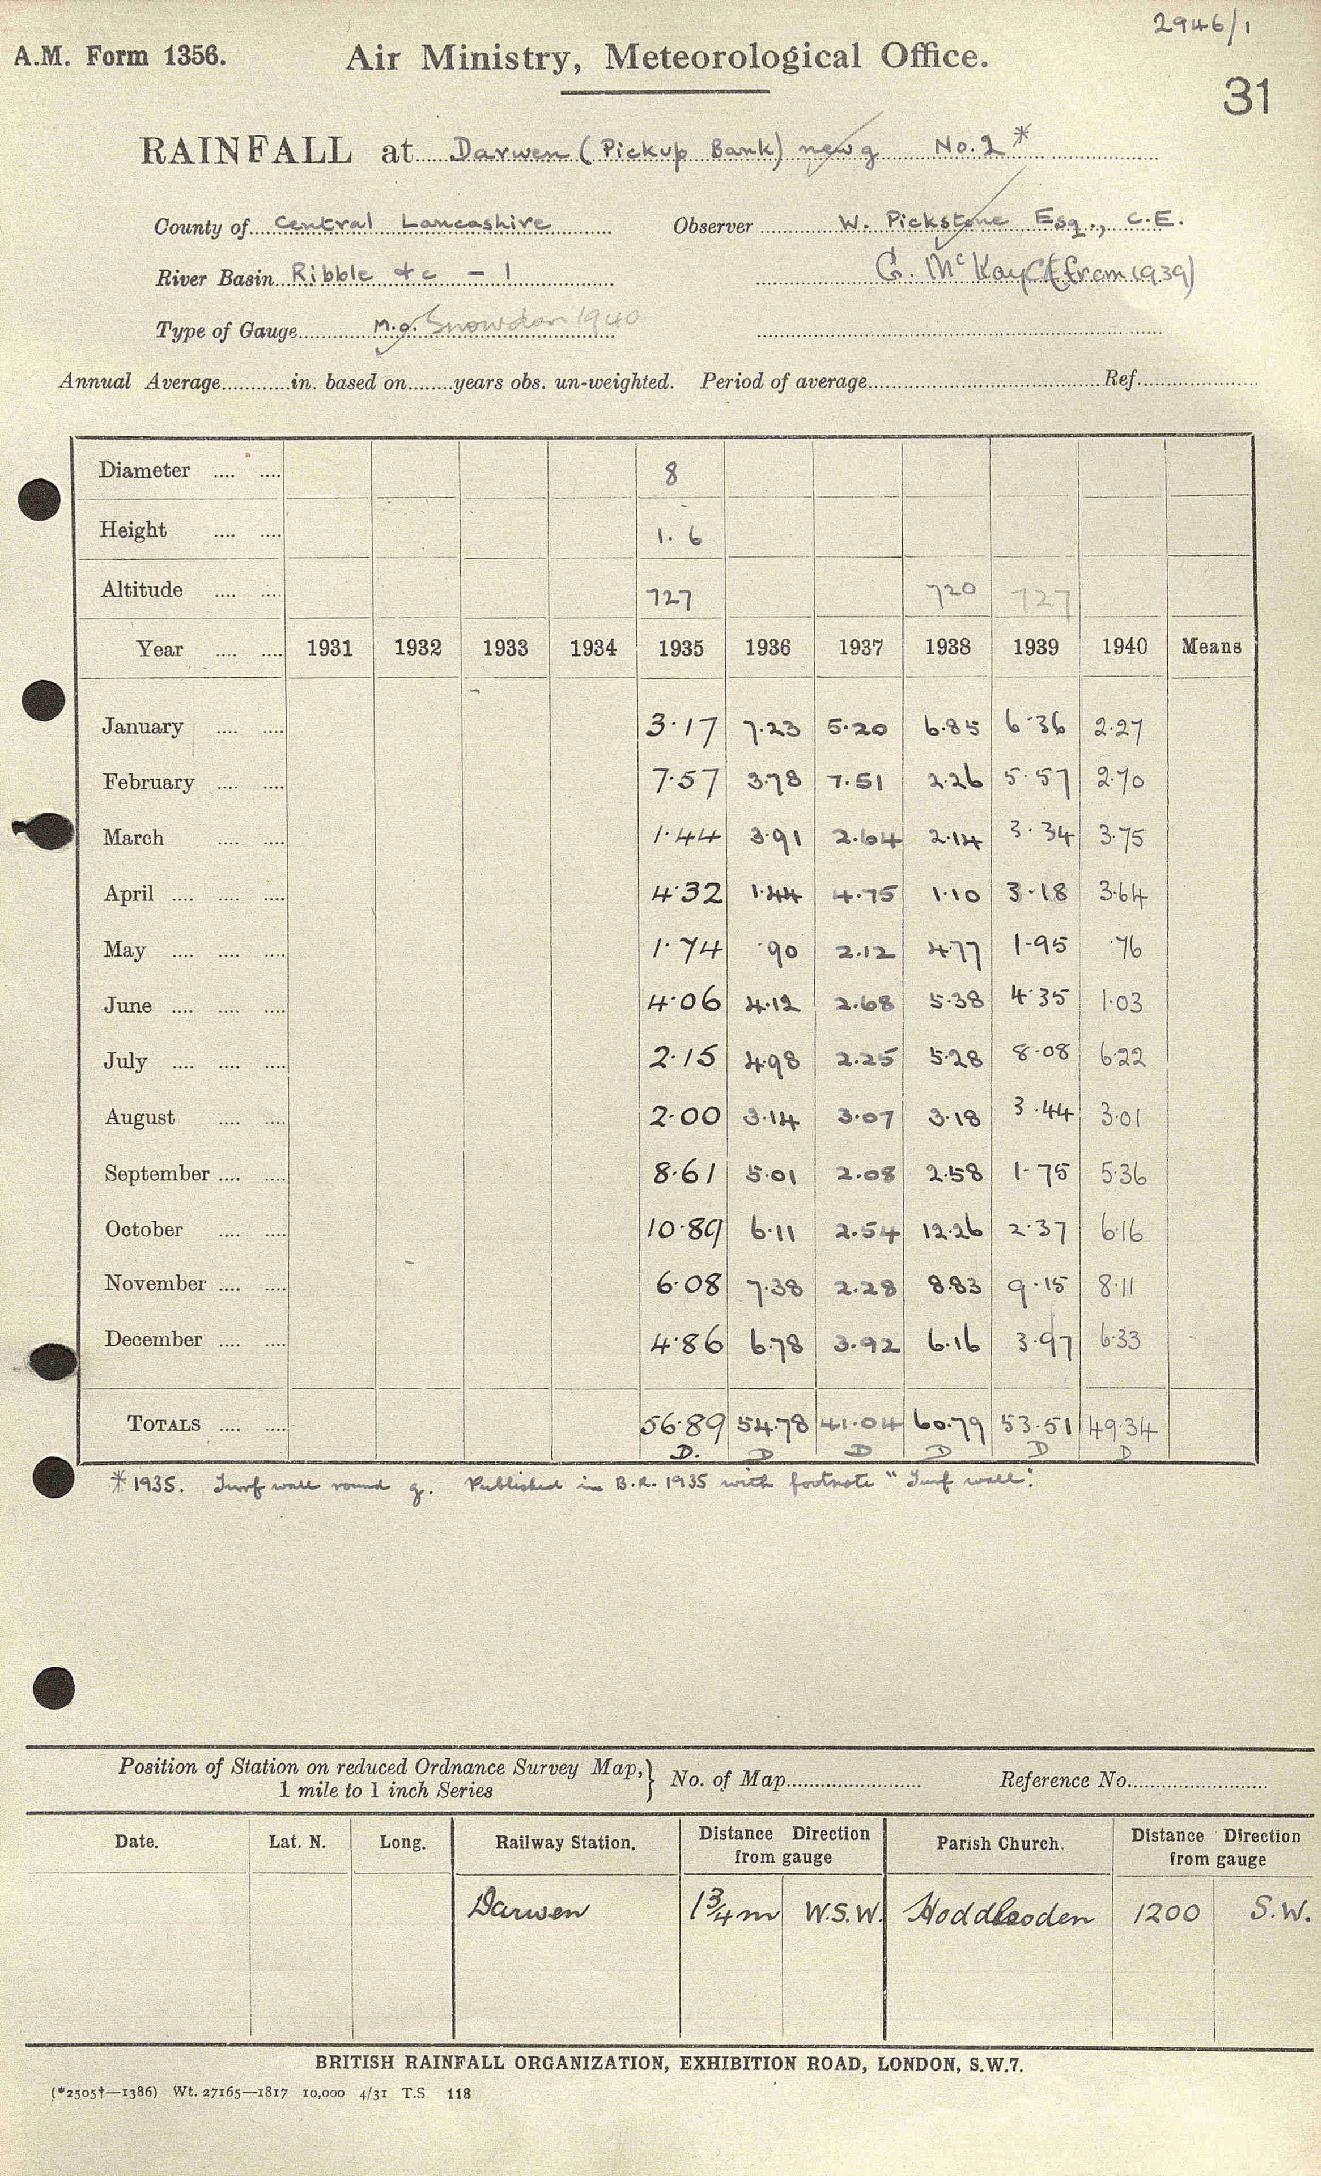 2946/1
A.M. Form 1356. Air Ministry, Meteorological Office.
31
RAINFALL at Darwen (Pickup Bank) new g No.2 *
County of Central Lancashire Observer W. Pickstone Esq., C.E.
River Basin Ribble &c - 1 G. McKay (from 1939)
Type of Gauge M.O. Snowdon 1940
Annual Average in. based on years obs. un-weighted. Period of average Ref.
Diameter 8
Height 1. 6
Altitude 727 720 727
Year 1931 1932 1933 1934 1935 1936 1937 1938 1939 1940 Means
January 3·17 7·23 5·20 6·85 6·36 2·27
February 7·57 3·78 7·51 2·26 5·57 2·70
March 1·44 3·91 2·64 2·14 3·34 3·75
April 4·32 1·44 4·75 1·10 3·18 3·64
May 1·74 ·90 2·12 4·77 1·95 ·76
June 4·06 4·12 2·68 5·38 4·35 1·03
July 2·15 4·98 2·25 5·28 8·08 6·22
August 2·00 3·14 3·07 3·18 3·44 3·01
September 8·61 5·01 2·08 2·58 1·75 5·36
October 10·89 6·11 2·54 12·26 2·37 6·16
November 6·08 7·38 2·28 8·83 9·15 8·11
December 4·86 6·78 3·92 6·16 3·97 6·33
TOTALS 56·89 54·78 41·04 60·79 53·51 49·34
D. D D D D D
* 1935. Turf wall round g. Published in B.R. 1935 with footnote "Turf wall".
Position of Station on reduced Ordnance Survey Map, } No. of Map Reference No.
1 mile to 1 inch Series
Date. Lat. N. Long. Railway Station. Distance Direction from gauge Parish Church. Distance Direction from gauge
Darwen 1¾m W.S.W. Hoddlesden 1200 S.W.
BRITISH RAINFALL ORGANIZATION, EXHIBITION ROAD, LONDON, S.W.7.
(*2505†—1386) Wt. 27165—1817 10,000 4/31 T.S 118